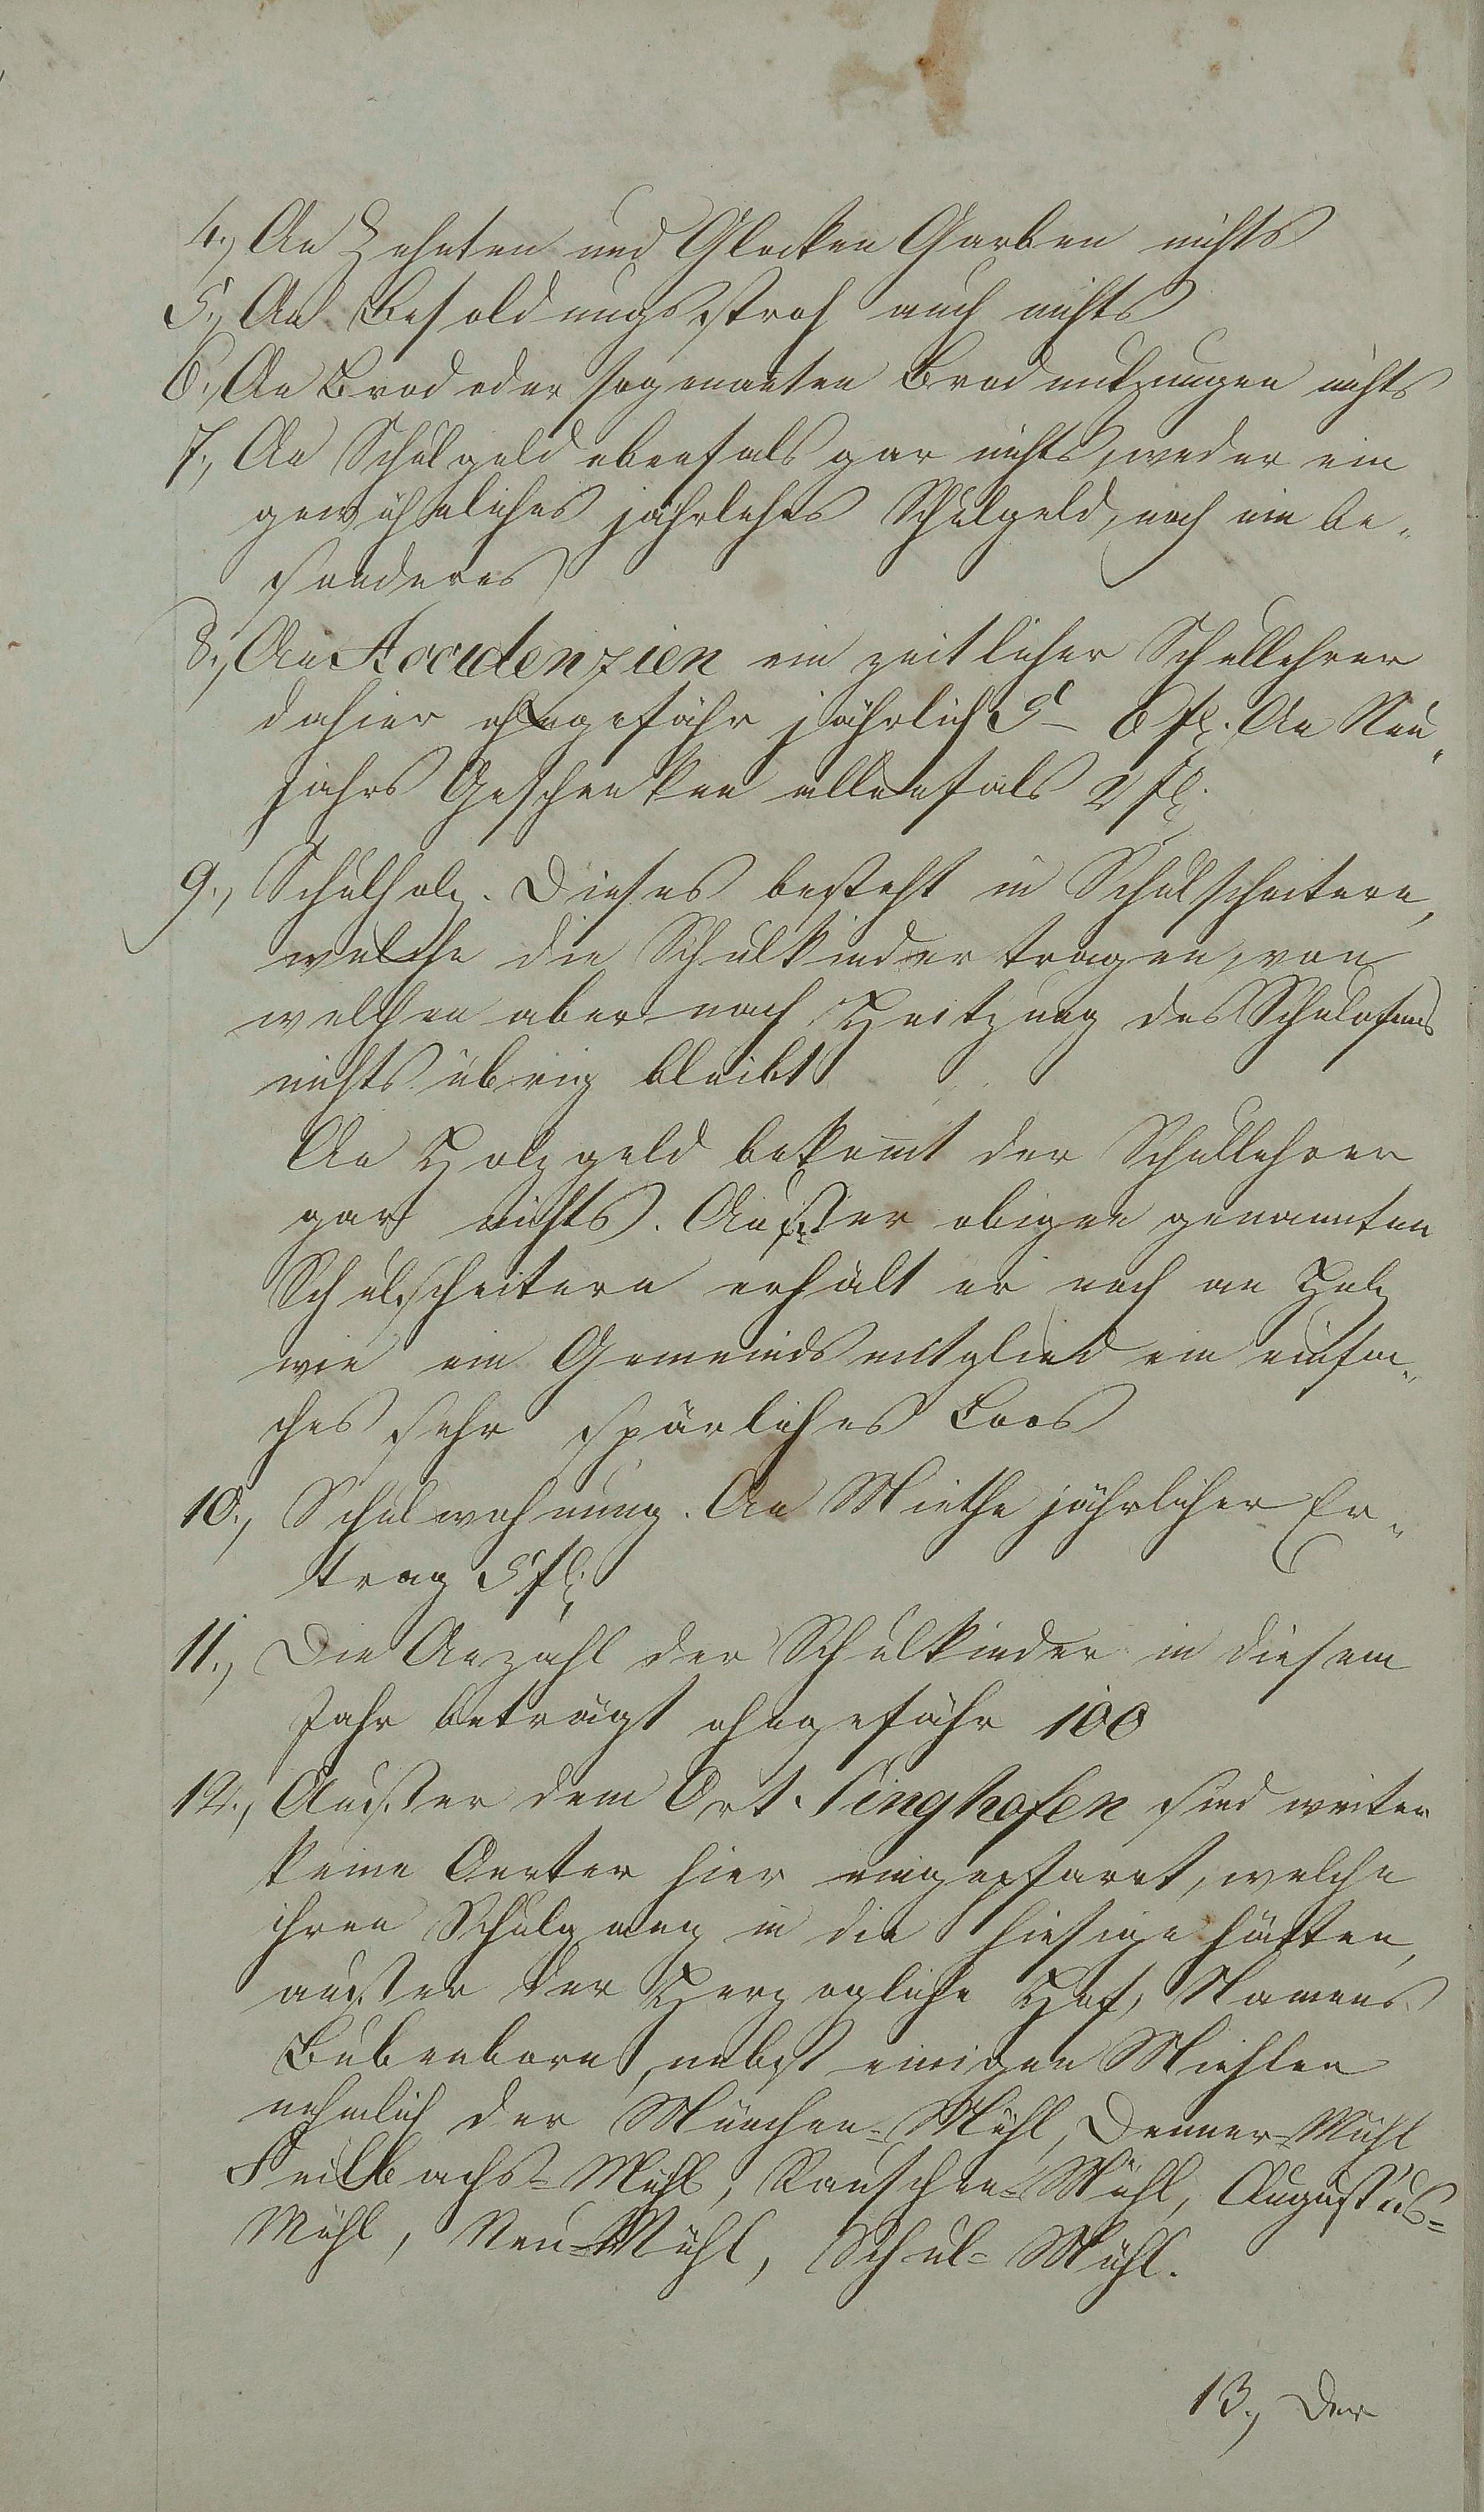 4., An Zehnten und Glocken Garben nichts
5., An Besoldungsstroh auch nichts
6., An Brod oder sogenanten Brodnutzungen nichts
7., An Schulgeld ebenfals gar nichts, weder ein
gewöhnliches jährliches Schulgeld, noch ein be-
sonderes
8., An Accidenzien ein zeitlicher Schullehrer
dahier ohngefähr jährlich 5 - 6 fl. An Neu-
jahrs Geschenken allenfals 2 fl.
9., Schulholz. Dieses besteht in Schulscheitern,
welche die Schulkinder tragen, von
welchen aber nach Heitzung des Schulofens
nichts übrig bleibt
An Holzgeld bekom̄t der Schullehrer
gar nichts. Ausser obigen genannten
Schulscheitern erhält er noch an Holz
wie ein Gemeindsmitglied ein einfa-
ches sehr spärliches Loos
10., Schulwohnung. An Miethe jährlicher Er-
trag 5 fl.
11., Die Anzahl der Schulkinder in diesem
Jahr beträgt ohngefähr 100
12., Ausser dem Ort Singhofen sind weiter
keine Oerter hier eingepfarrt, welche
ihren Schulgang in die hiesige hätten,
ausser der Herzogliche Hof, Namens
Bubenborn, nebst einigen Mühlen
nehmlich der München-Mühl, Denner-Mühl
Feilbachs-Mühl, Rauschen-Mühl, Augustus-
Mühl, Neu-Mühl, Schul-Mühl.
13., Der